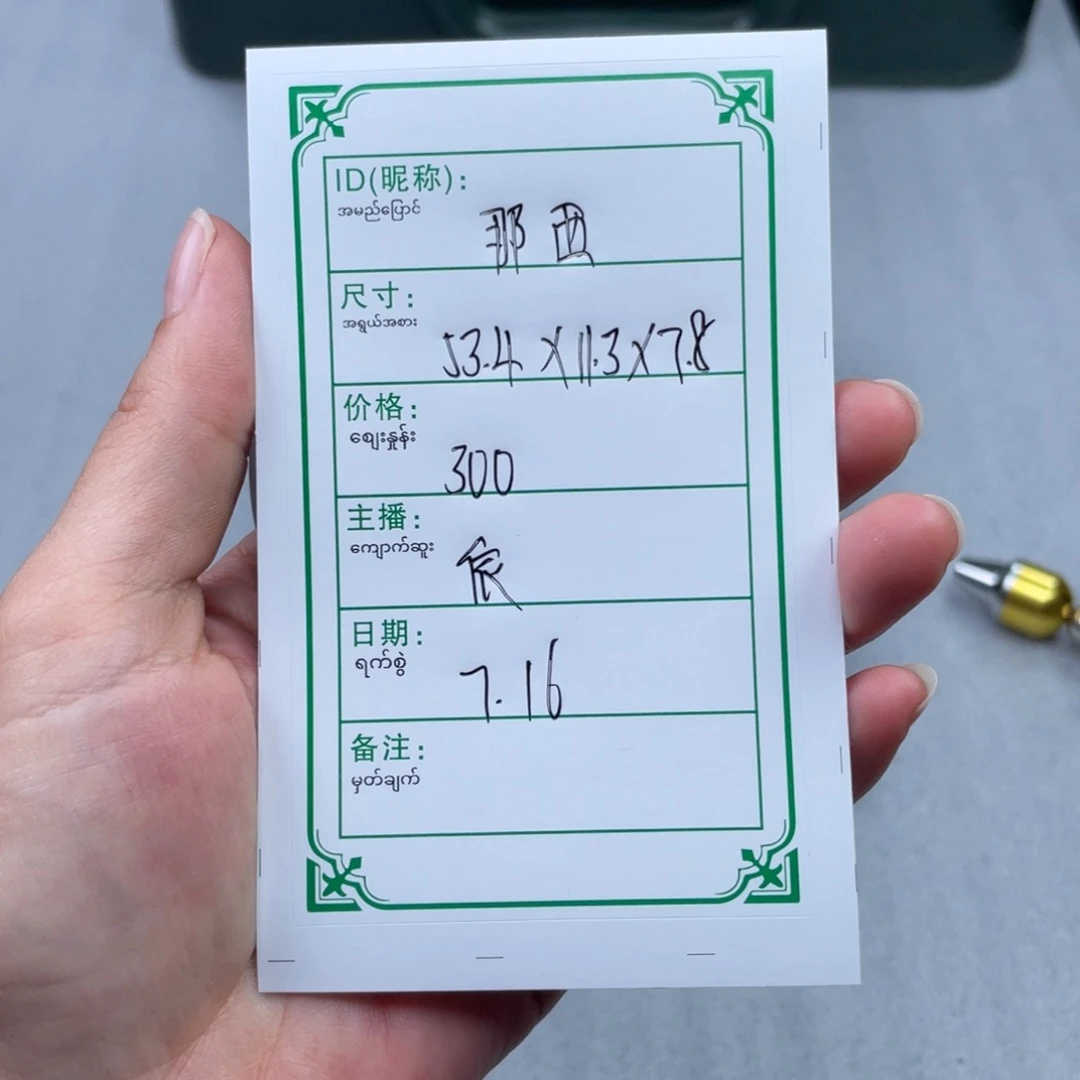 ID(昵称):
အမည်ပြောင်
那西
尺寸:
အရွယ်အစား
53.4×11.3×7.8
价格:
စျေးနှုန်း
300
主播:
ကျောက်ဆူး
日期:
ရက်စွဲ
7.16
备注:
မှတ်ချက်